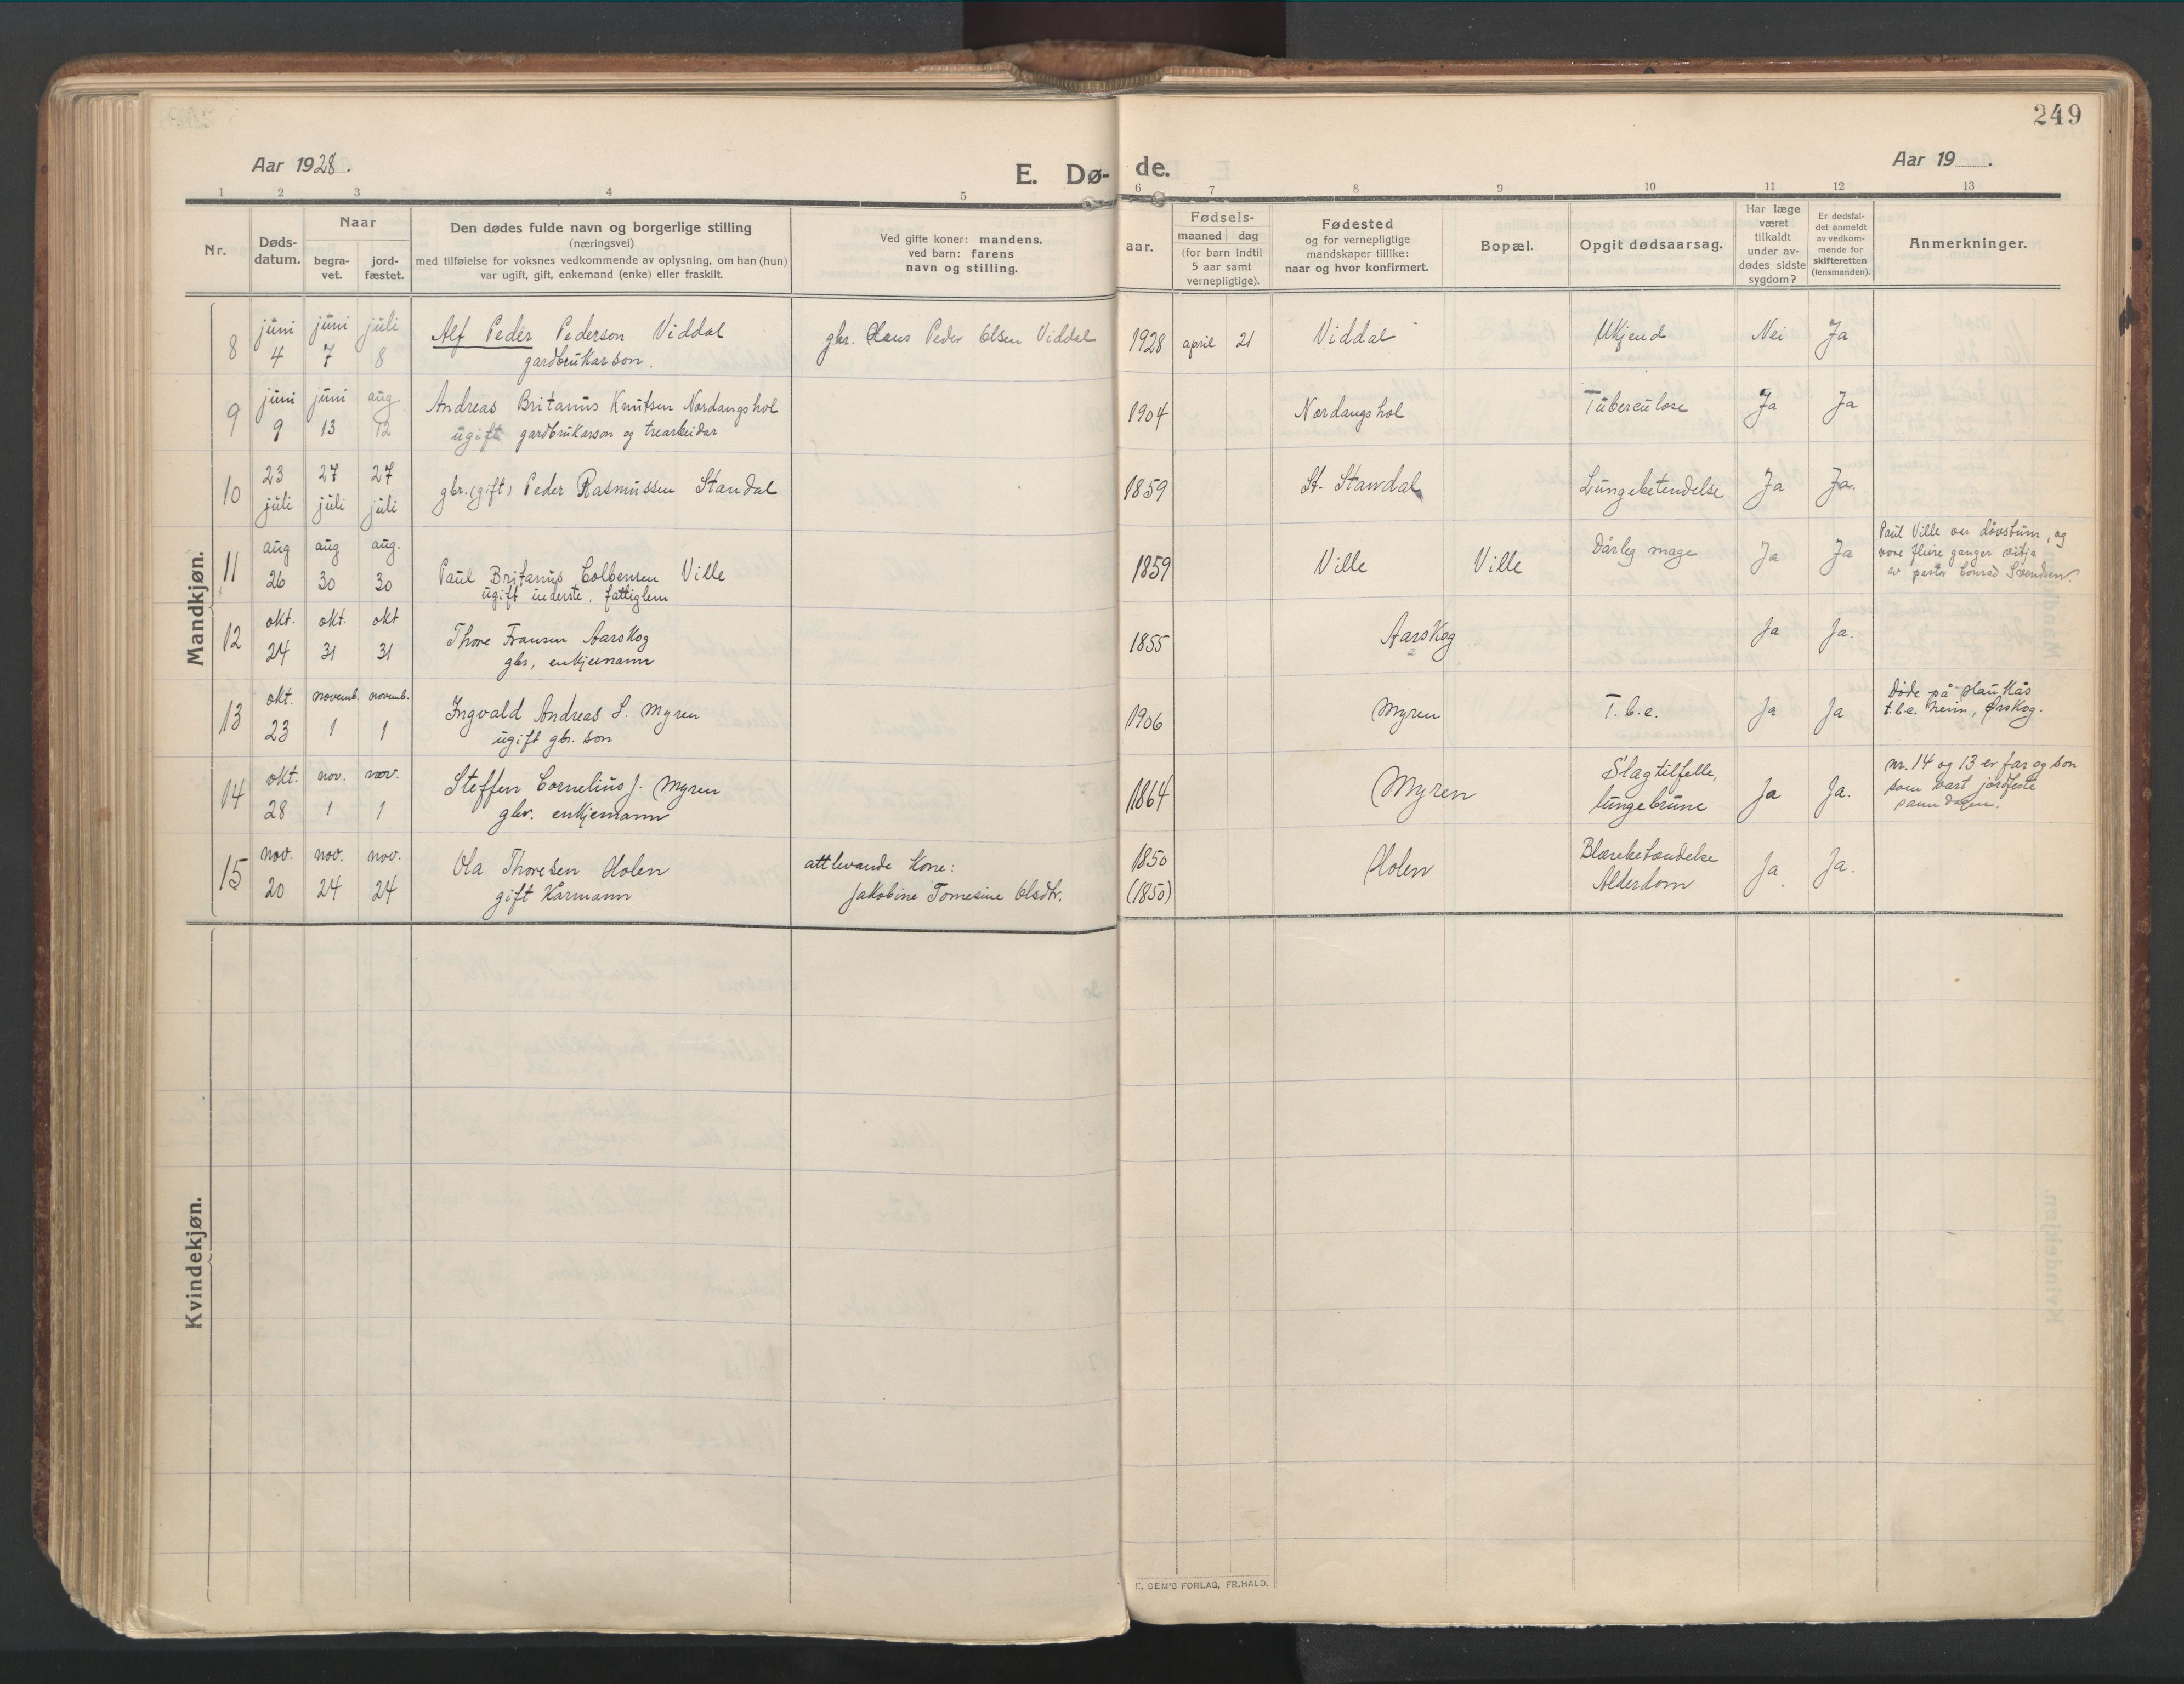 249
Aar 1928.
E. Dø-
de.
Aar 19 .
1 2 3 4 5 6 7 8 9 10 11 12 13
Nr.
Døds-
datum.
Naar
begra-
vet.
jord-
fæstet.
Den dødes fulde navn og borgerlige stilling
(næringsvei)
med tilføielse for voksnes vedkommende av oplysning, om han (hun)
var ugift, gift, enkemand (enke) eller fraskilt.
Ved gifte koner: mandens,
ved barn: farens
navn og stilling.
aar.
Fødsels-
maaned dag
(for barn indtil
5 aar samt
vernepligtige).
Fødested
og for vernepligtige
mandskaper tillike:
naar og hvor konfirmert.
Bopæl.
Opgit dødsaarsag.
Har læge
været
tilkaldt
under av-
dødes sidste
sygdom?
Er dødsfal-
det anmeldt
av vedkom-
mende for
skifteretten
(lensmanden).
Anmerkninger.
Mandkjøn.
8 juni juni juli Alf Peder Pederson Viddal gbr. Claus Peder Olsen Viddal 1928 april 21 Viddal Ukjend Nei Ja
4 7 8 gardbrukarson.
9 juni juni aug. Andreas Britanus Knutsen Nordangshol 1904 Nordangshol Tuberculose Ja Ja
9 13 12 ugift gardbrukarson og trearbeidar
10 23 27 27 gbr. (gift) Peder Rasmussen Standal 1859 St. Standal Lungebetendelse Ja Ja.
juli juli juli
11 aug aug aug. Paul Britanus Colbensen Ville 1859 Ville Ville Dårleg mage Ja Ja Paul Ville var døvstum, og
26 30 30 ugift inderste, fattiglem vore fleire ganger vitja
av pastor Conrad Svendsen.
12 okt. okt. okt Thore Fransen Aarskog 1855 Aarskog Ja Ja.
24 31 31 gbr, enkjemann
13 okt. novemb. novemb. Ingvald Andreas S. Myren 1906 Myren T.b.c. Ja Ja Døde på
23 1 1 ugift gbr. son t.b.c. heim, Ørskog.
14 okt. nov. nov. Steffen Cornelius J. Myren 1864 Myren Slagtilfelle, Ja Ja. nr. 14 og 13 er far og son
28 1 1 gbr. enkjemann lungebrune som vart jordfeste
same dagen.
15 nov. nov. nov. Ola Thoresen Holen attlevande Kone: 1850 Holen Blærebetændelse Ja Ja.
20 24 24 gift Karmann Jakobine Tomesine Olsdtr. (1850) Alderdom
Kvindekjøn.
E. SEM'S FORLAG, FR.HALD.